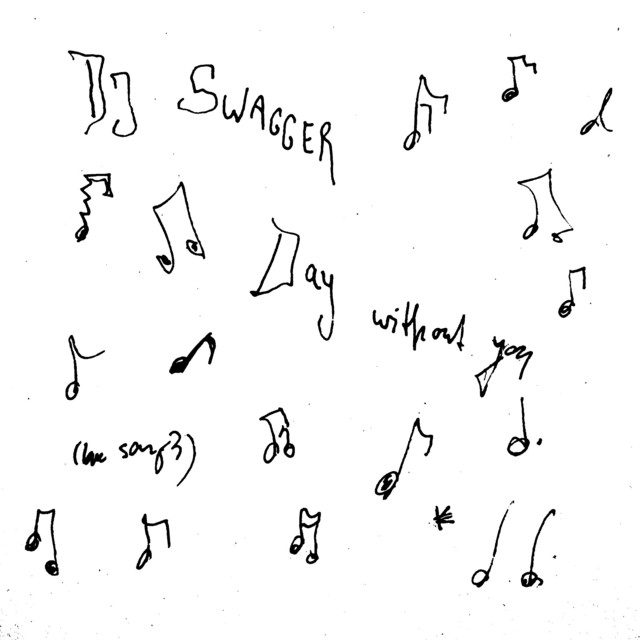 DJ SWAGGER
Day
without you
(luv song3)